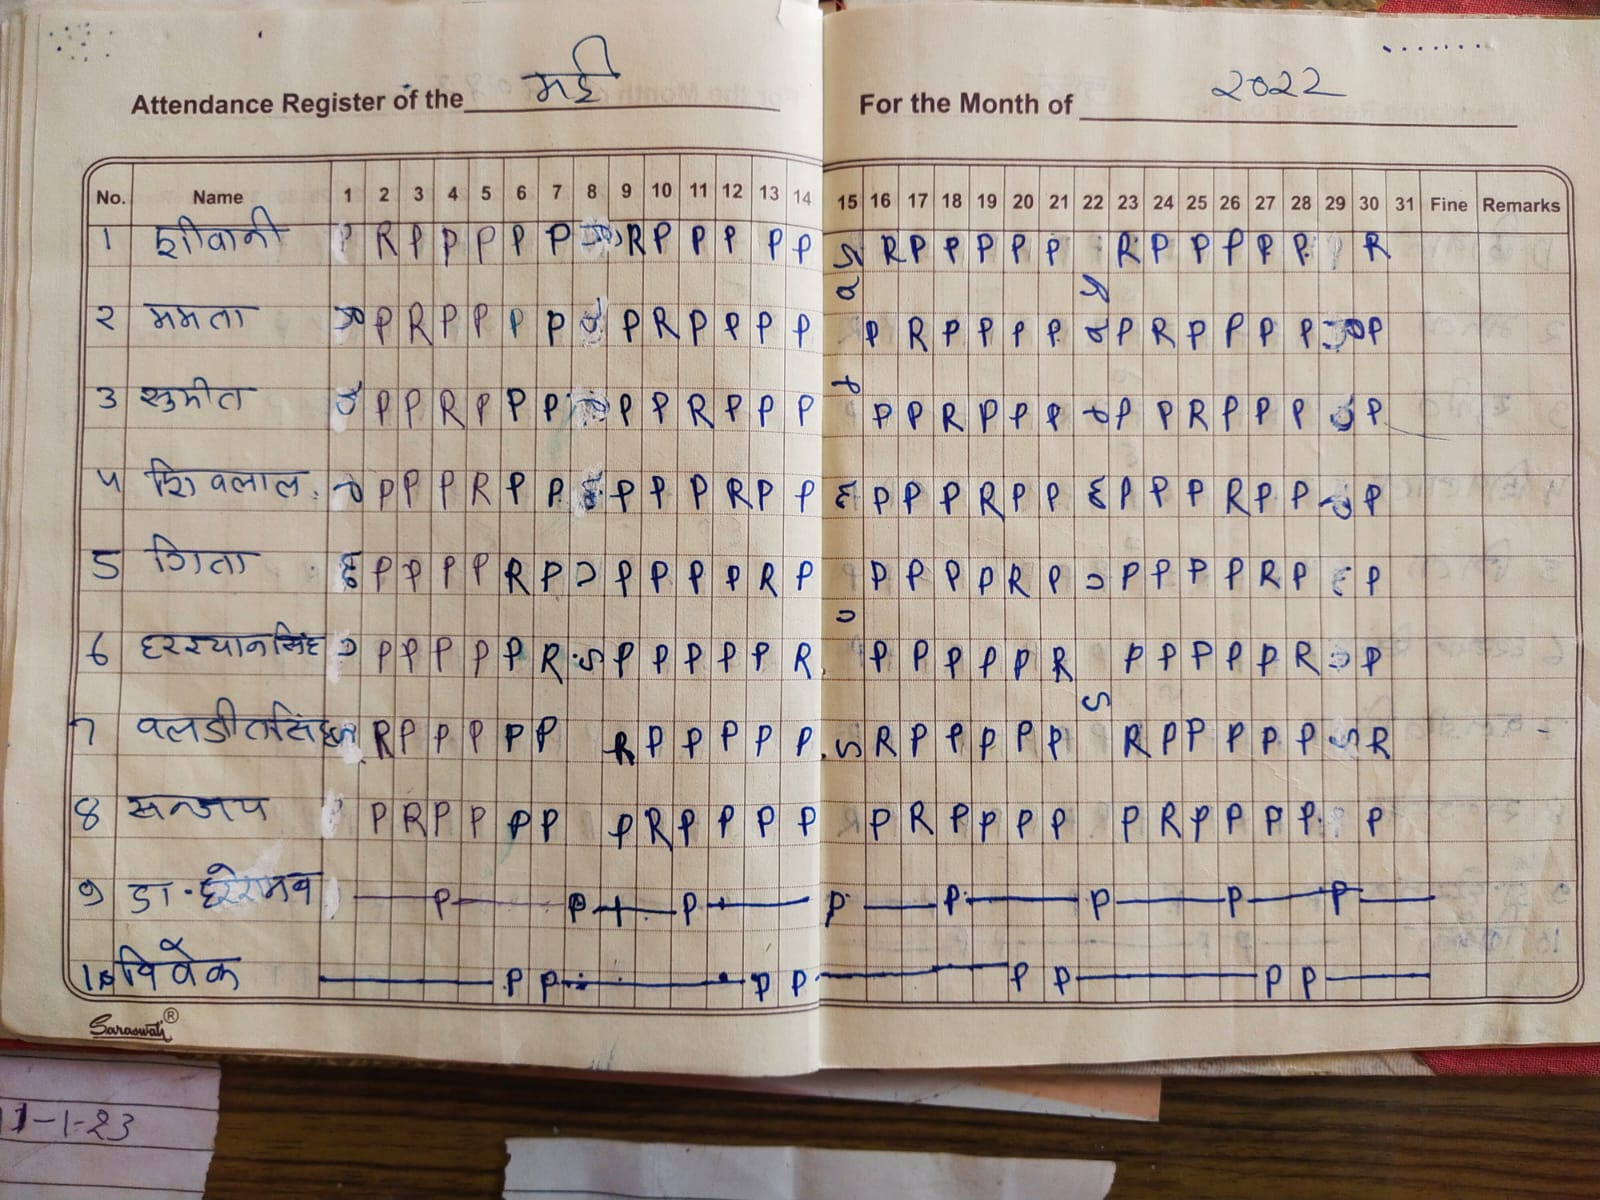 Attendance Register of the मई For the Month of 2022
No. Name 1 2 3 4 5 6 7 8 9 10 11 12 13 14 15 16 17 18 19 20 21 22 23 24 25 26 27 28 29 30 31 Fine Remarks
1 शीवानी P R P P P P P R P P P P P R P P P P P R P P P P P R
2 ममता P R P P P P P R P P P P P R P P P P P R P P P P P
3 सुमीत P P R P P P P P R P P P P P R P P P P P R P P P P
4 शिवलाल P P P R P P P P P R P P P P P R P P P P P R P P P
5 गिता P P P P R P P P P P R P P P P P R P P P P P R P P
6 P P P P P R P P P P P R P P P P P R P P P P P R P
7 R P P P P P R P P P P P R P P P P P R P P P P P R
8 सन्जय P R P P P P P R P P P P P R P P P P P R P P P P P
9 डा. P P P P P P P P
10 विवेक P P P P P P P P
Saraswati ®
11-1-23